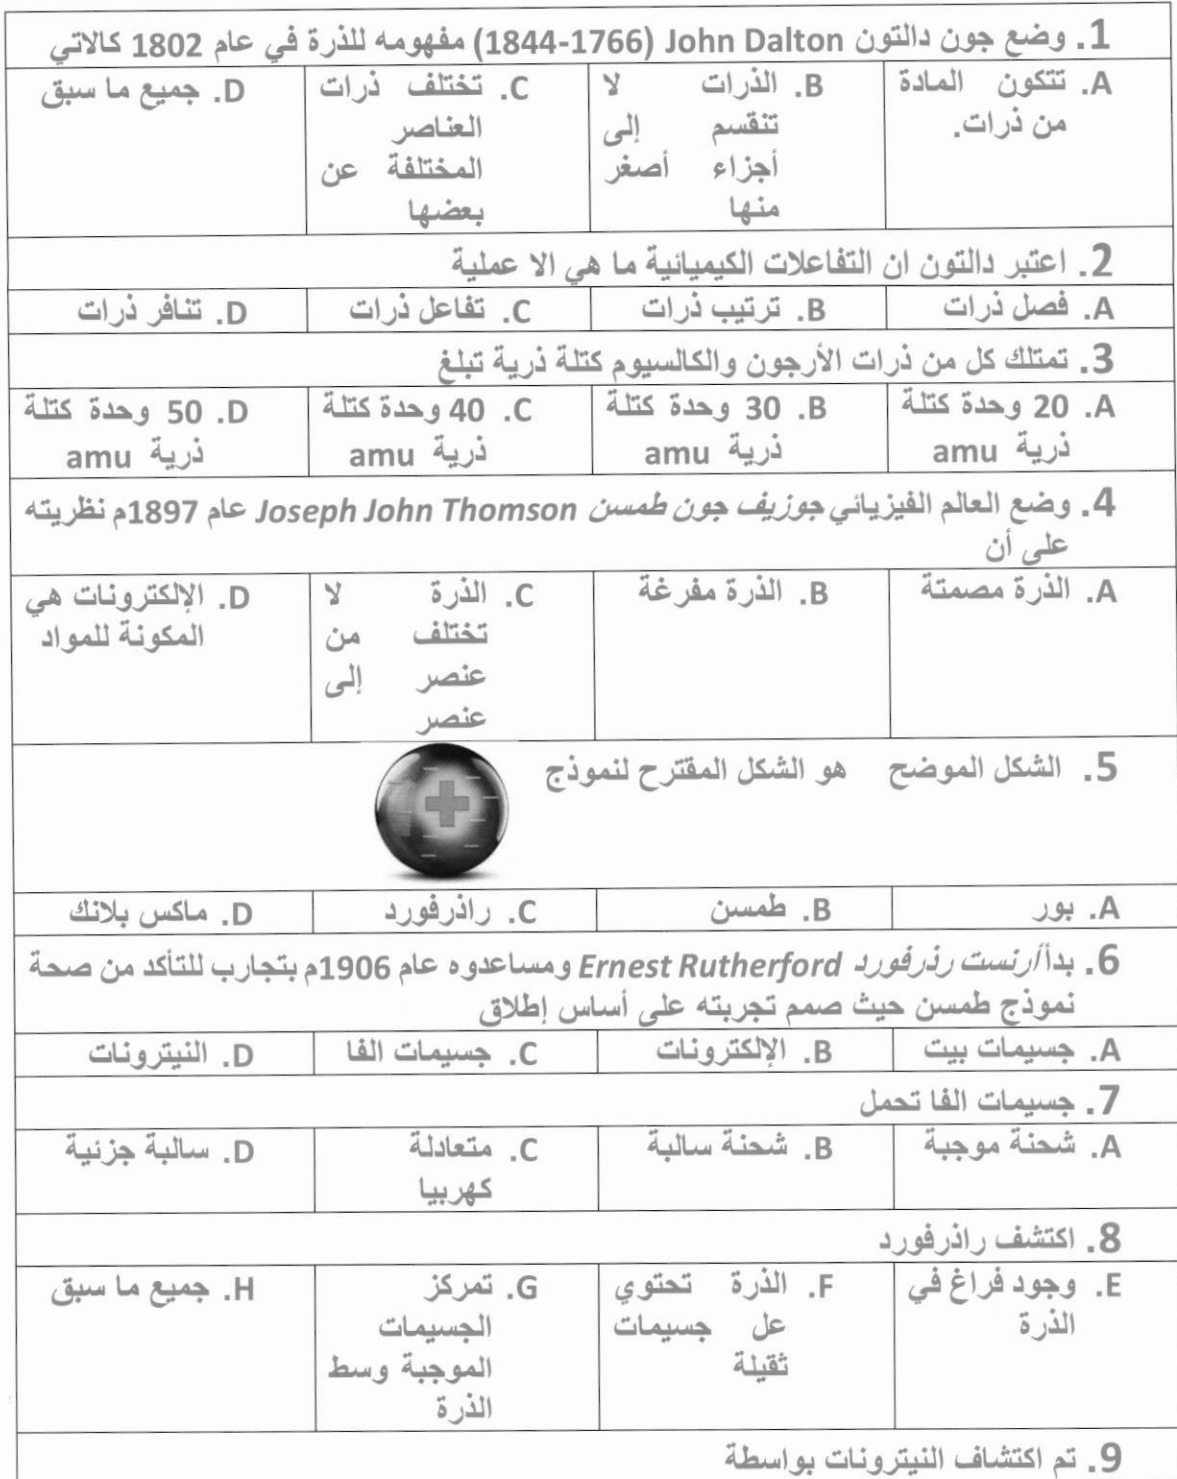 1. وضع جون دالتون John Dalton (1766-1844) مفهومه للذرة في عام 1802 كالاتي
A. تتكون المادة من ذرات.
B. الذرات لا تنقسم إلى أجزاء أصغر منها
C. تختلف ذرات العناصر المختلفة عن بعضها
D. جميع ما سبق
2. اعتبر دالتون ان التفاعلات الكيميائية ما هي الا عملية
A. فصل ذرات
B. ترتيب ذرات
C. تفاعل ذرات
D. تنافر ذرات
3. تمتلك كل من ذرات الأرجون والكالسيوم كتلة ذرية تبلغ
A. 20 وحدة كتلة ذرية amu
B. 30 وحدة كتلة ذرية amu
C. 40 وحدة كتلة ذرية amu
D. 50 وحدة كتلة ذرية amu
4. وضع العالم الفيزيائي جوزيف جون طمسن Joseph John Thomson عام 1897م نظريته
على أن
A. الذرة مصمتة
B. الذرة مفرغة
C. الذرة لا تختلف من عنصر إلى عنصر
D. الإلكترونات هي المكونة للمواد
5. الشكل الموضح هو الشكل المقترح لنموذج
A. بور
B. طمسن
C. راذرفورد
D. ماكس بلانك
6. بدأ أرنست رذرفورد Ernest Rutherford ومساعدوه عام 1906م بتجارب للتأكد من صحة
نموذج طمسن حيث صمم تجربته على أساس إطلاق
A. جسيمات بيت
B. الإلكترونات
C. جسيمات الفا
D. النيترونات
7. جسيمات الفا تحمل
A. شحنة موجبة
B. شحنة سالبة
C. متعادلة كهربيا
D. سالبة جزئية
8. اكتشف راذرفورد
E. وجود فراغ في الذرة
F. الذرة تحتوي عل جسيمات ثقيلة
G. تمركز الجسيمات الموجبة وسط الذرة
H. جميع ما سبق
9. تم اكتشاف النيترونات بواسطة